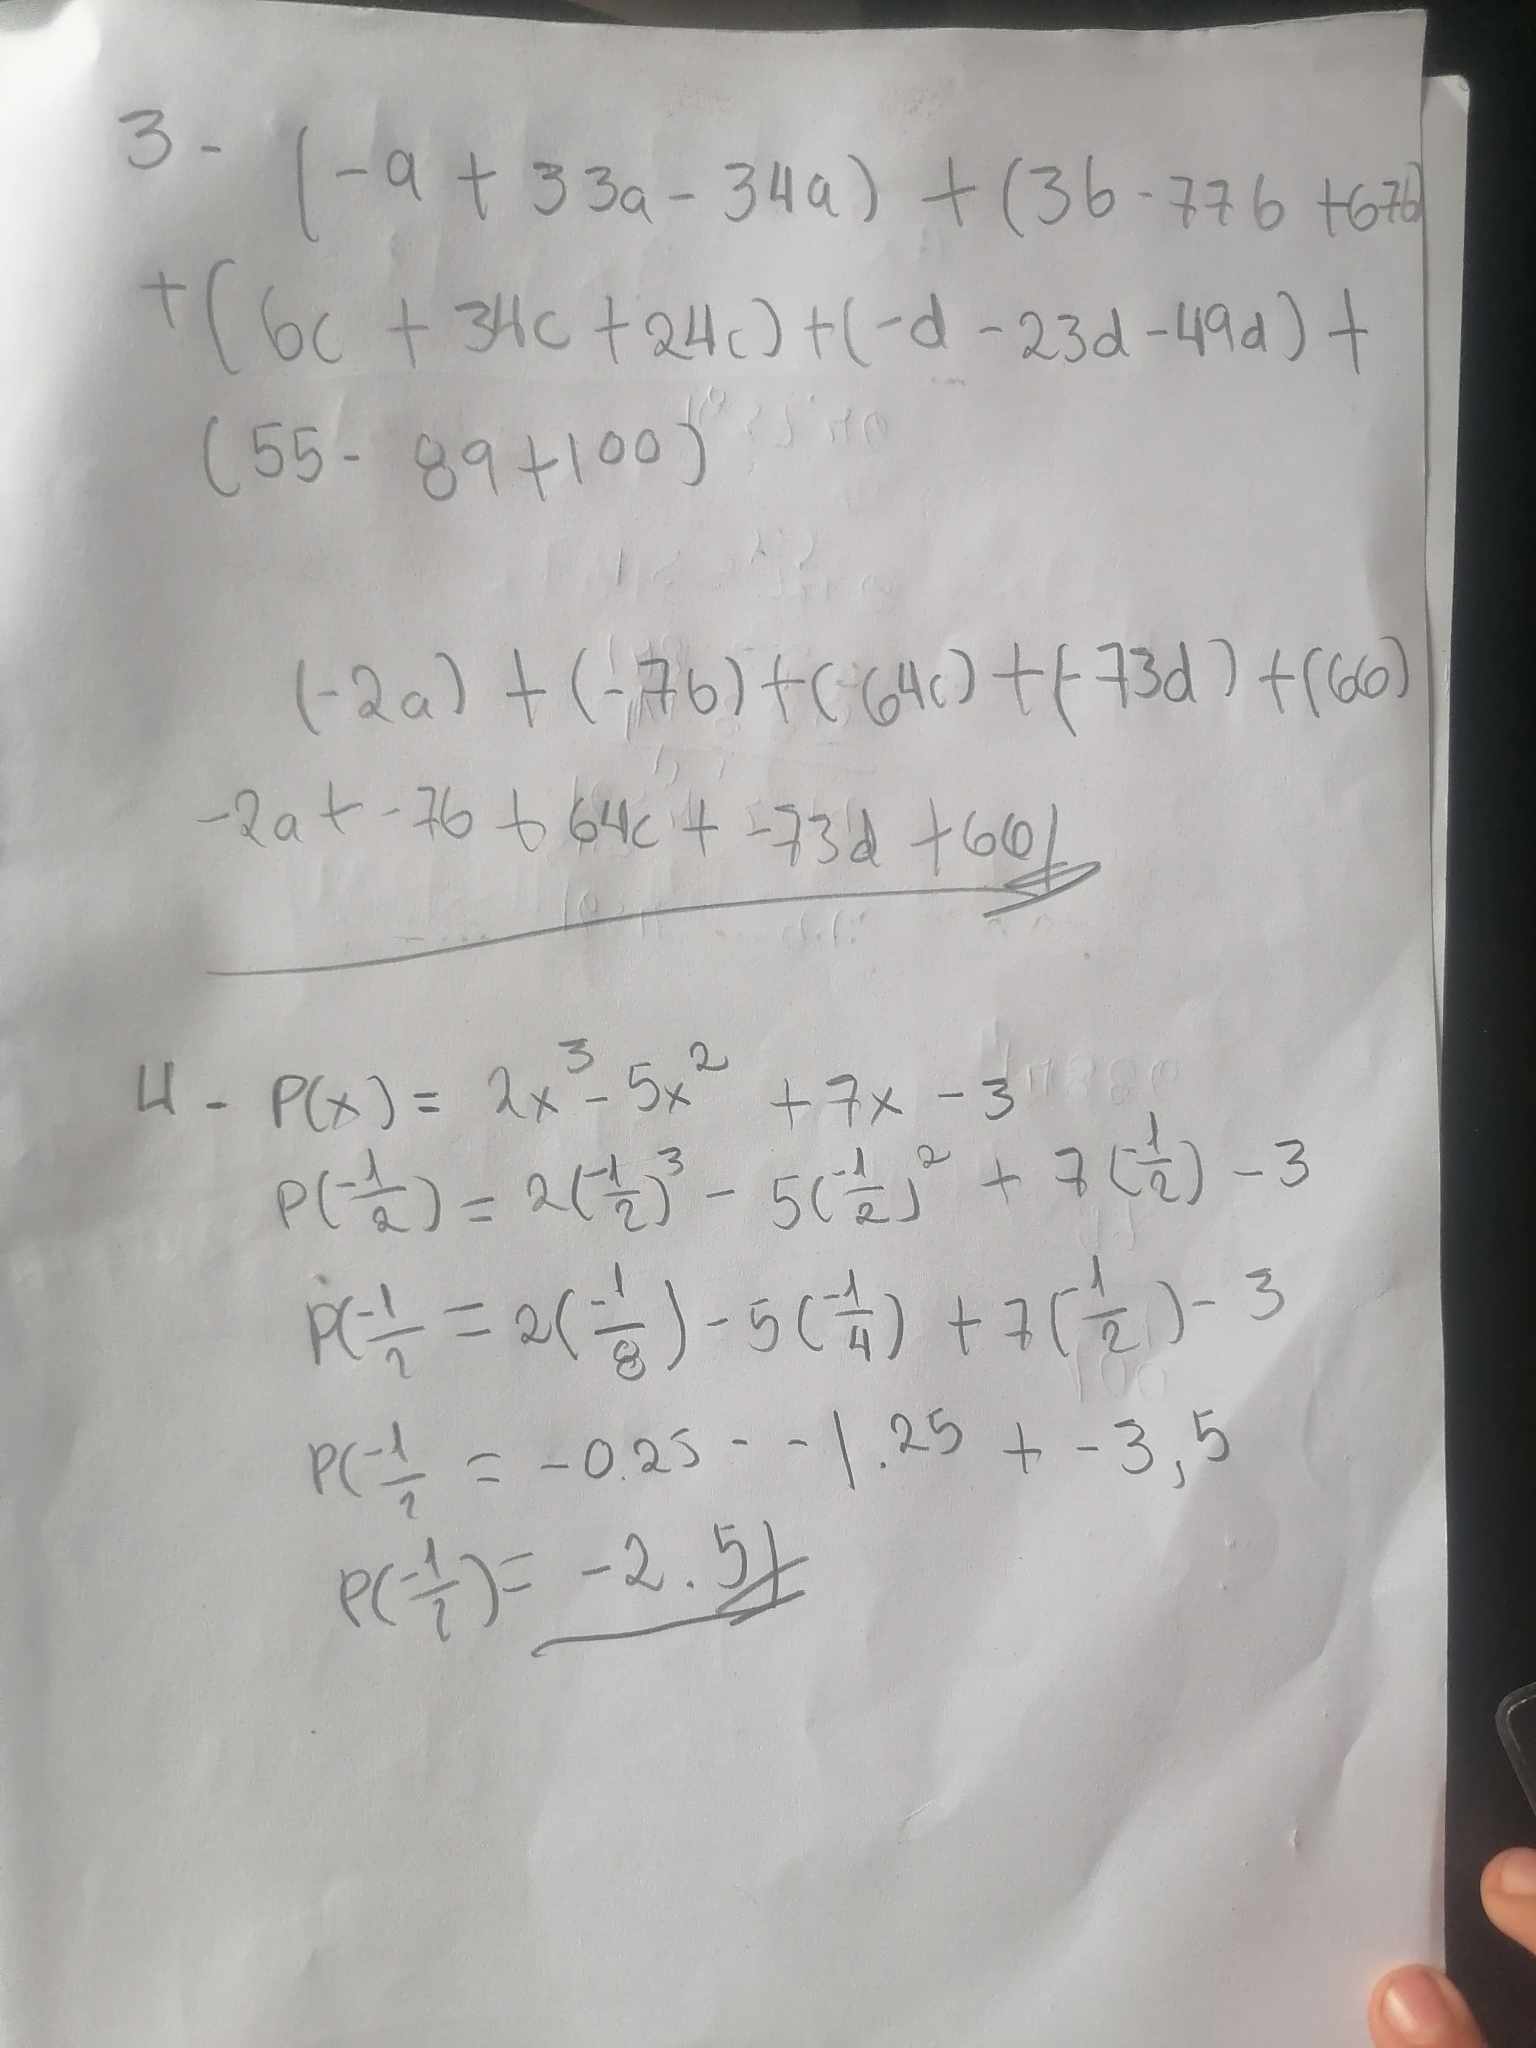 3 - (-a + 33a - 34a) + (3b - 77b + 67b)
+ (6c + 34c + 24c) + (-d - 23d - 49d) +
(55 - 89 + 100)
(-2a) + (-7b) + (64c) + (-73d) + (66)
-2a + -7b + 64c + -73d + 66
4 - P(x) = 2x³ - 5x² + 7x - 3
P(-1/2) = 2(-1/2)³ - 5(-1/2)² + 7(-1/2) - 3
P(-1/2 = 2(-1/8) - 5(-1/4) + 7(-1/2) - 3
P(-1/2 = -0.25 - -1.25 + -3,5
P(-1/2) = -2.5